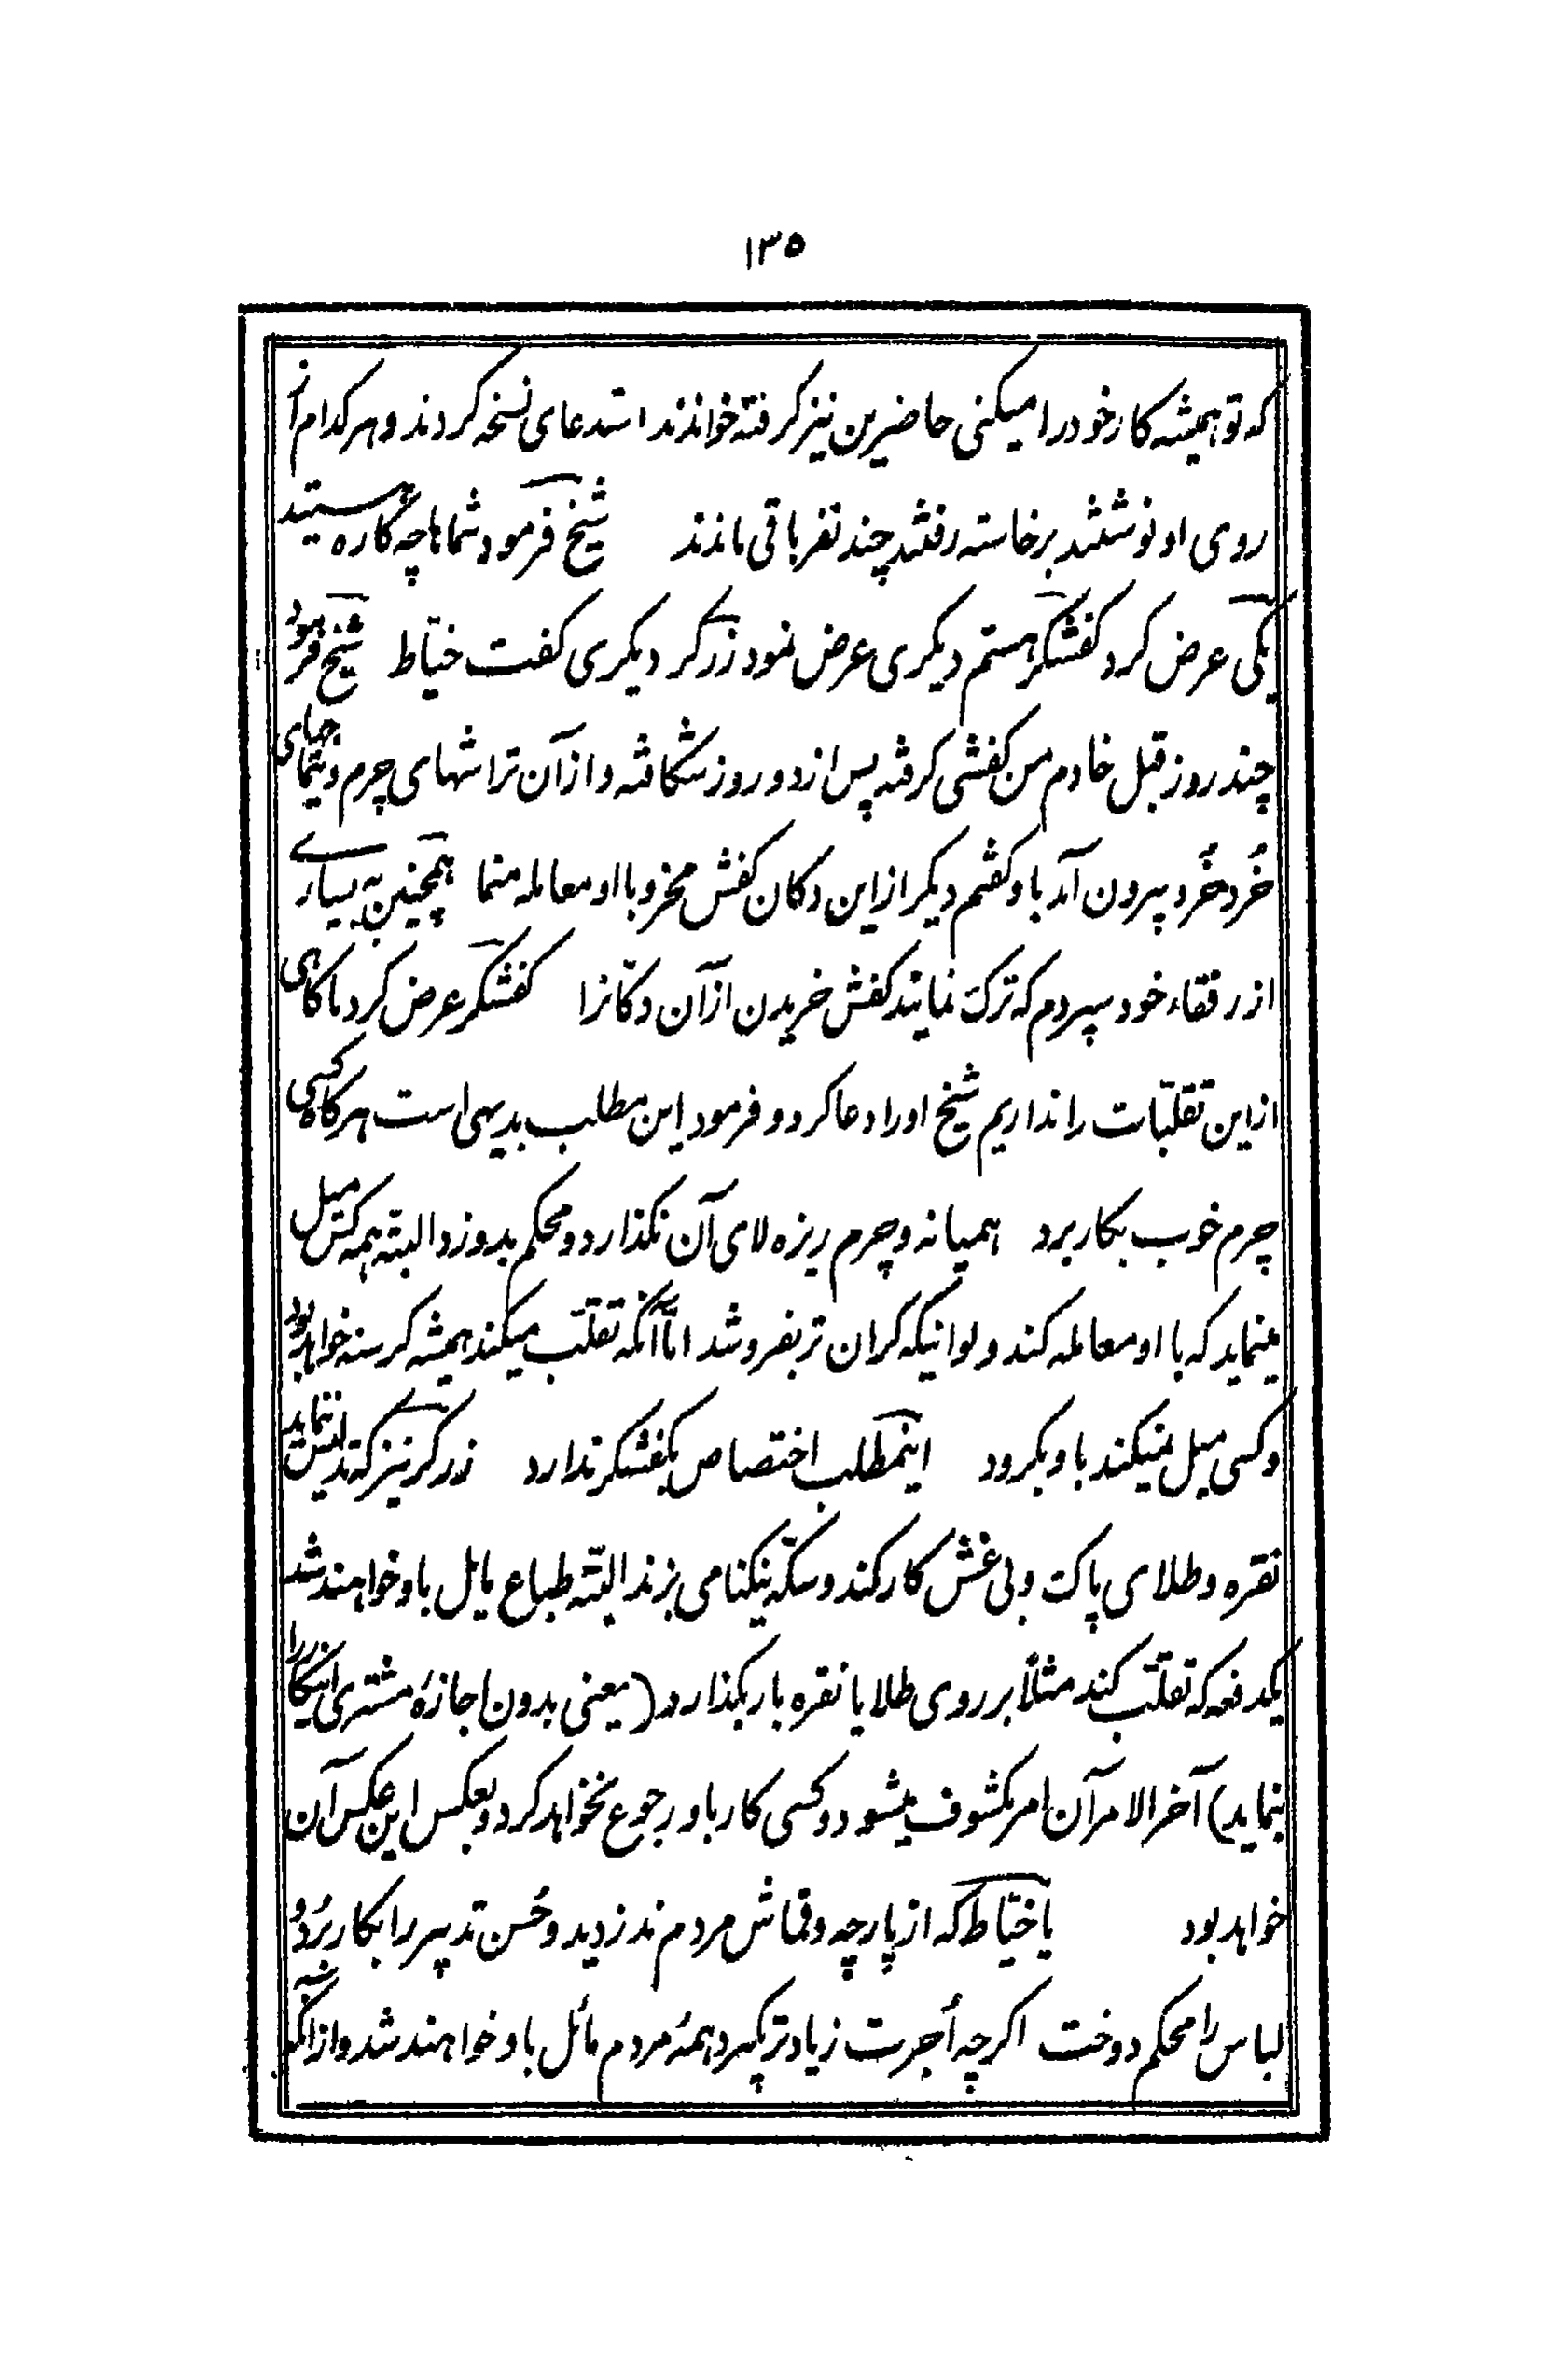 ۱۳۵
که تو همیشه کار خود را میکنی حاضرین نیز کرفته خواندند استدعای نسخه کردند و هر کدام از
روی او نوشتند برخاسته رفتند چند نفر باقی ماندند شیخ فرمود شماها چه کاره هستید
یکی عرض کرد کفشکر هستم دیکری عرض نمود زرکر دیکری کفت خیّاط شیخ فرمود
چند روز قبل خادم من کفشی کرفته پس از دو روز شکافته و از آن تراشهای چرم و تیماجهای
خُرد خُرد بیرون آمد باو کفتم دیکر از این دکان کفش مخر و با او معامله منما همچنین به بسیاری
از رفقاء خود سپردم که ترک نمایند کفش خریدن از آن دکّانرا کفشکر عرض کرد ماکاهی
از این تقلّبات را نداریم شیخ او را دعا کرد و فرمود این مطلب بدیهی است هرکاه کسی
چرم خوب بکار برد همیانه و چرم ریزه لای آن نکذارد و محکم بدوزد البته همه کس میل
مینماید که با او معامله کند ولو اینکه کران تر بفروشد امّا آنکه تقلّب میکند همیشه کرسنه خواهد بود
و کسی میل نمیکند باو بکرود اینمطلب اختصاص بکفشکر ندارد زرکر نیز که تدلیس ننماید
نقره و طلای پاک و بی غش کار کند و سکّه نیکنامی بزند البتّه طباع مایل باو خواهند شد
یکدفعه که تقلّب کند مثلاً بر روی طلا یا نقره بار بکذارد (یعنی بدون اجازهٔ مشتری اینکار را
بنماید) آخر الامر آن امر مکشوف میشود و کسی کار باو رجوع نخواهد کرد و بعکس این عکس آن
خواهد بود یا خیّاط که از پارچه و قماش مردم ندزدید و حُسن تدبیر را بکار بُرد و
لباس را محکم دوخت اکرچه اُجرت زیادتر بکیرد همهٔ مردم مائل باو خواهند شد و از